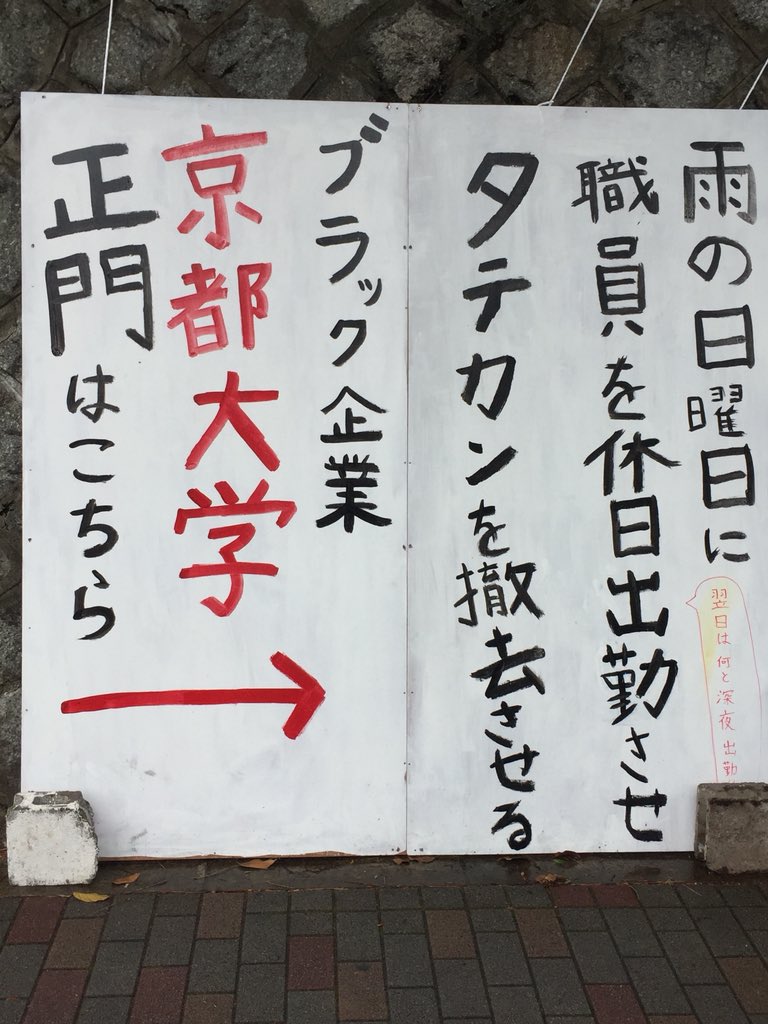 雨の日曜日に
翌日は何と深夜出勤
職員を休日出勤させ
タテカンを撤去させる
ブラック企業
京都大学
正門はこちら